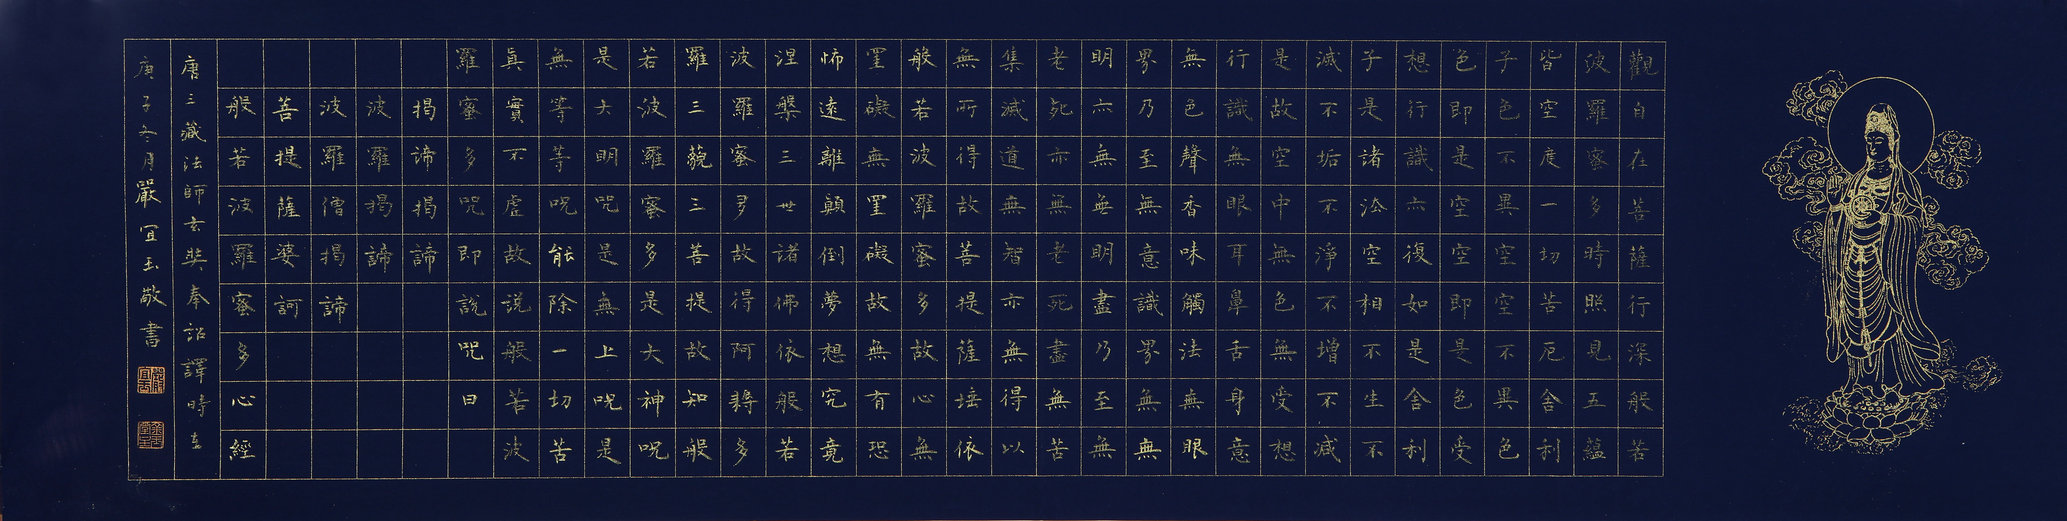 觀自在菩薩行深般若
波羅蜜多時照見五蘊
皆空度一切苦厄舍利
子色不異空空不異色
色即是空空即是色受
想行識亦復如是舍利
子是諸法空相不生不
滅不垢不淨不增不減
是故空中無色無受想
行識無眼耳鼻舌身意
無色聲香味觸法無眼
界乃至無意識界無無
明亦無無明盡乃至無
老死亦無老死盡無苦
集滅道無智亦無得以
無所得故菩提薩埵依
般若波羅蜜多故心無
罣礙無罣礙故無有恐
怖遠離顛倒夢想究竟
涅槃三世諸佛依般若
波羅蜜多故得阿耨多
羅三藐三菩提故知般
若波羅蜜多是大神呪
是大明呪是無上呪是
無等等呪能除一切苦
眞實不虛故說般若波
羅蜜多呪即說呪曰
揭諦揭諦
波羅揭諦
波羅僧揭諦
菩提薩婆訶
般若波羅蜜多心經
唐三藏法師玄奘奉詔譯時在
庚子冬月嚴宜玉敬書